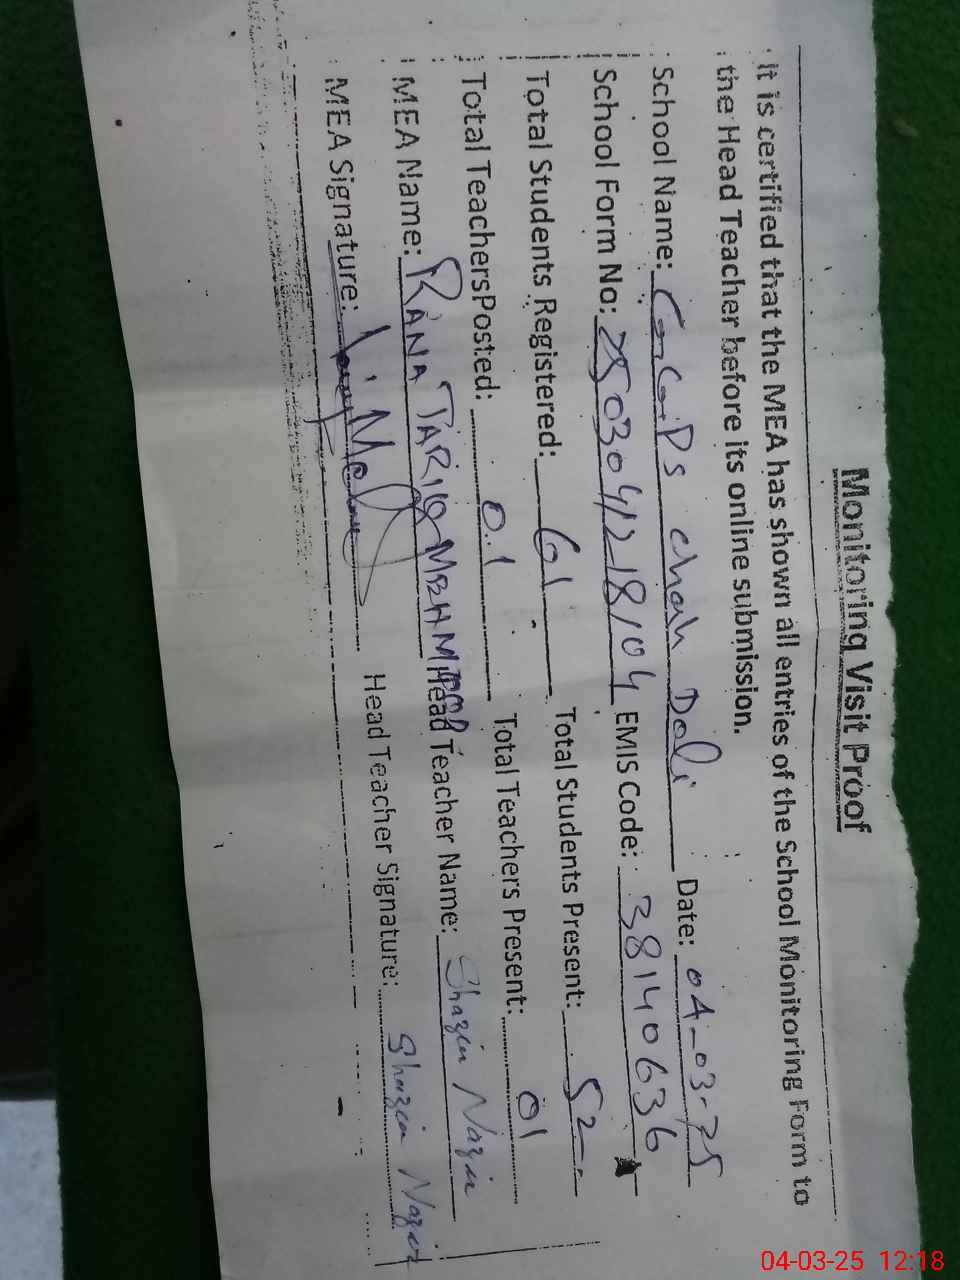 Monitoring Visit Proof
It is certified that the MEA has shown all entries of the School Monitoring Form to
the Head Teacher before its online submission.
School Name: G.G.P.S chah Dali Date: 04-03-25
School Form No: 2503041218104 EMIS Code: 38140636
Total Students Registered: 61 Total Students Present: 52
Total TeachersPosted: 01 Total Teachers Present: 01
MEA Name: RANA TARIQ MEHMOOD Head Teacher Name: Shazia Nazir
MEA Signature: Head Teacher Signature: Shazia Nazir
04-03-25 12:18